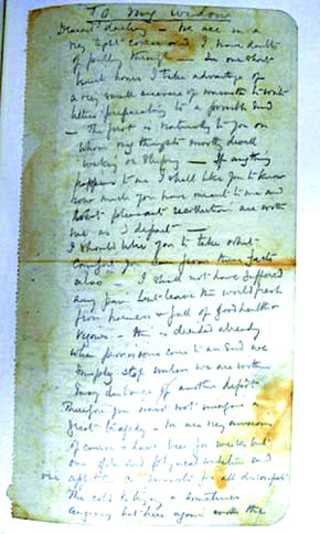 To my widow
Dearest darling – We are in a
very tight corner and I have doubts
of pulling through – In our short
lunch hours I take advantage of
a very small measure of warmth to write
letters preparatory to a possible end
– The first is naturally to you on
whom my thoughts mostly dwell
waking or sleeping – If anything
happens to me I shall like you to know
how much you have meant to me and
that pleasant recollections are with
me as I depart –
I should like you to take what
comfort you can from these facts
also – I shall not have suffered
any pain but leave the world fresh
from harness & full of good health &
vigour – this is decided already
when provisions come to an end we
simply stop unless we are within
easy distance of another depot
Therefore you must not imagine a
great tragedy – we are very anxious
of course & have been for weeks but
our splendid physical condition and
our appetites compensate for all discomfort
The cold is biting & sometimes
angering but here again the